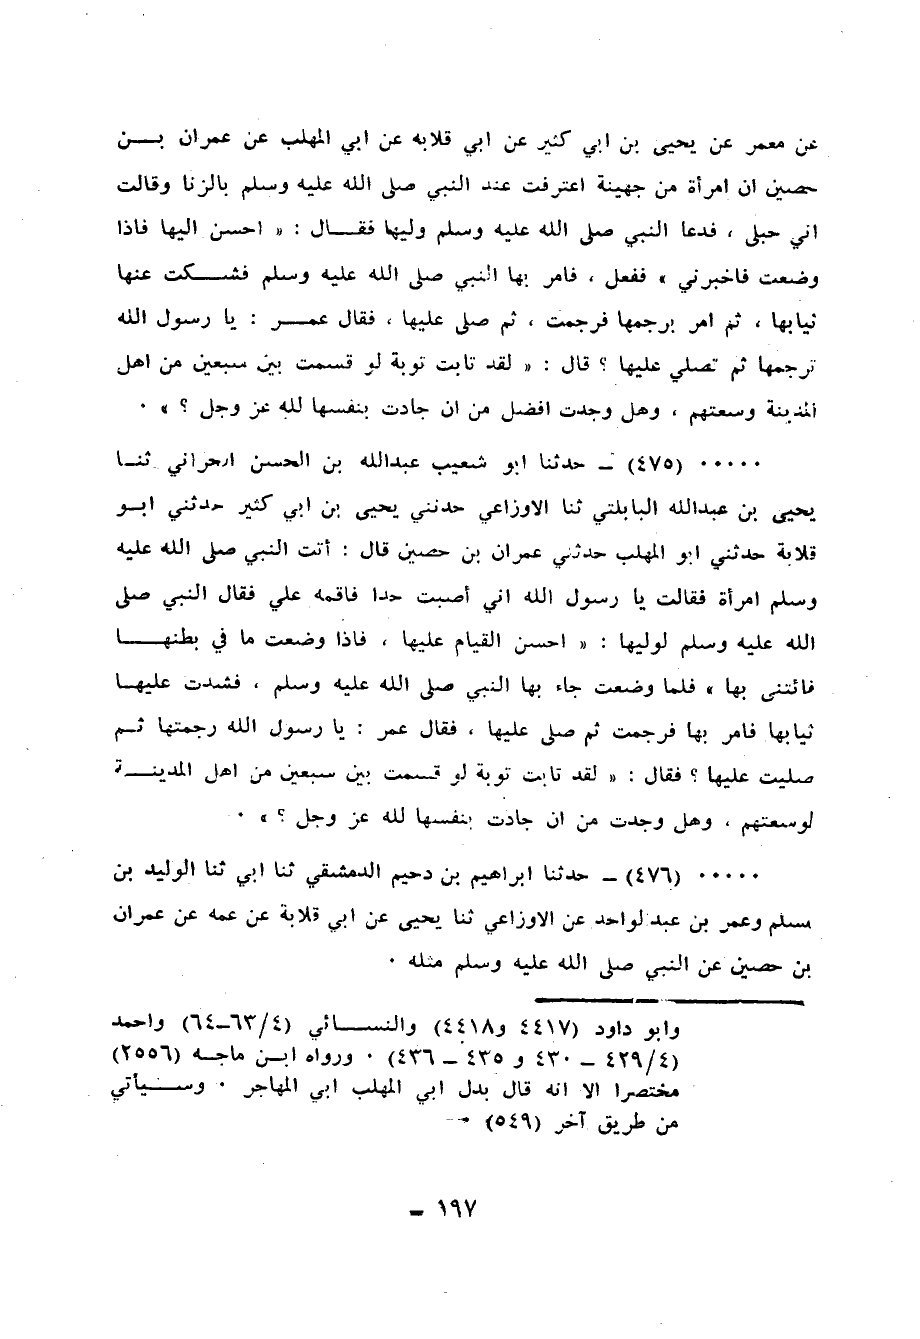 عن معمر عن يحيى بن ابي كثير عن ابي قلابه عن ابي المهلب عن عمران بـــن
حصين ان امرأة من جهينة اعترفت عند النبي صلى الله عليه وسلم بالزنا وقالت
اني حبلى ، فدعا النبي صلى الله عليه وسلم وليها فقـــال : « احسن اليها فاذا
وضعت فاخبرني » ففعل ، فامر بها النبي صلى الله عليه وسلم فشـــكت عنها
ثيابها ، ثم امر برجمها فرجمت ، ثم صلى عليها ، فقال عمـــر : يا رسول الله
ترجمها ثم تصلي عليها ؟ قال : « لقد تابت توبة لو قسمت بين سبعين من اهل
المدينة وسعتهم ، وهل وجدت افضل من ان جادت بنفسها لله عز وجل ؟ » ٠
٠٠٠٠٠ (٤٧٥) ــ حدثنا ابو شعيب عبدالله بن الحسن الحراني ثنــا
يحيى بن عبدالله البابلتي ثنا الاوزاعي حدثني يحيى بن ابي كثير حدثني ابــو
قلابة حدثني ابو المهلب حدثني عمران بن حصين قال : أتت النبي صلى الله عليه
وسلم امرأة فقالت يا رسول الله اني أصبت حدا فاقمه علي فقال النبي صلى
الله عليه وسلم لوليها : « احسن القيام عليها ، فاذا وضعت ما في بطنهـــا
فائتنى بها » فلما وضعت جاء بها النبي صلى الله عليه وسلم ، فشدت عليهــا
ثيابها فامر بها فرجمت ثم صلى عليها ، فقال عمر : يا رسول الله رجمتها ثــم
صليت عليها ؟ فقال : « لقد تابت توبة لو قسمت بين سبعين من اهل المدينـــة
لوسعتهم ، وهل وجدت من ان جادت بنفسها لله عز وجل ؟ » ٠
٠٠٠٠٠ (٤٧٦) ــ حدثنا ابراهيم بن دحيم الدمشقي ثنا ابي ثنا الوليد بن
مسلم وعمر بن عبد لواحد عن الاوزاعي ثنا يحيى عن ابي قلابة عن عمه عن عمران
بن حصين عن النبي صلى الله عليه وسلم مثله ٠
وابو داود (٤٤١٧ و٤٤١٨) والنســـائي (٤/٦٣ــ٦٤) واحمد
(٤/٤٢٩ ــ ٤٣٠ و ٤٣٥ ــ ٤٣٦) ٠ ورواه ابــن ماجــه (٢٥٥٦)
مختصرا الا انه قال بدل ابي المهلب ابي المهاجر ٠ وســـيأتي
من طريق آخر (٥٤٩) ٠
١٩٧ ــ